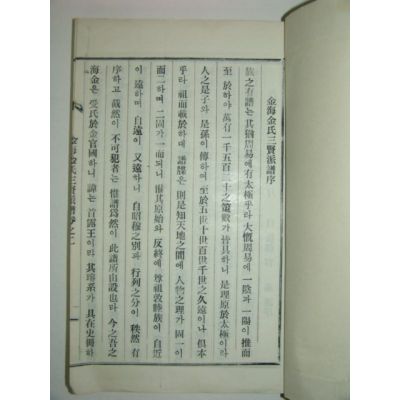 金海金氏三賢派譜序
族之有譜는其猶周易에有太極乎라大慨周易에一陰과一陽이推而
至於하야萬有一千五百二十之策數가皆具하니是理原於太極이라
人之是子와是孫이傳하여至於五世十世百世千世之久遠이나俱本
乎라祖而載於하대譜牒은則是知天地之間에人物之理가同一이
而二하며二同가一而되니其原始와反終에尊祖敦睦族이自近
이遠하며自遠이又遠하니自昭穆之別과行列之分이秩然有
序하고截然이不可犯者는惟譜爲然이此譜所由設也라今之吾之
海金은受氏於金官國하니諱는首露王이라其璿系가具在史冊하
金海金氏三賢派譜卷之一